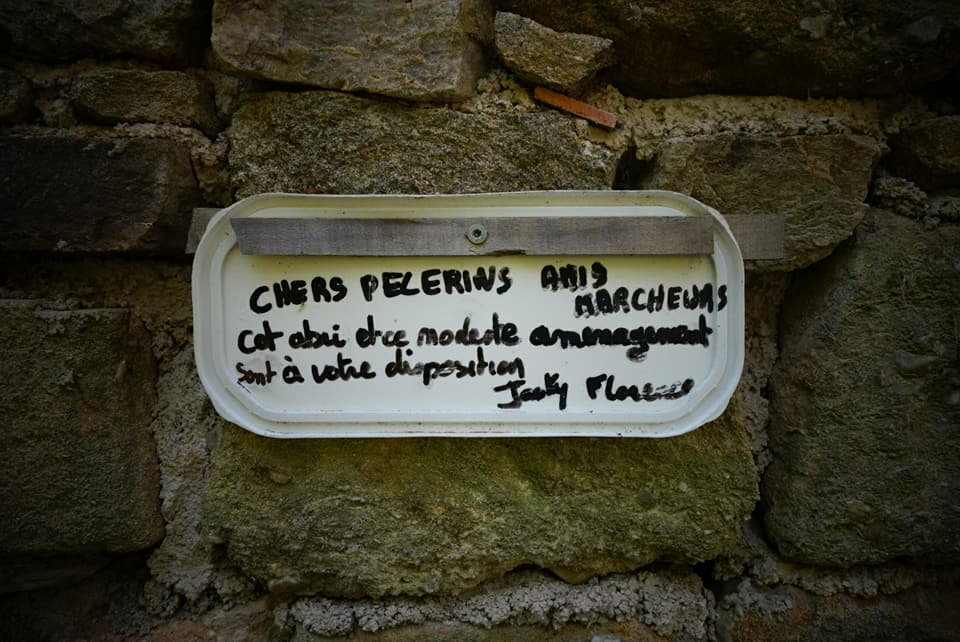 CHERS PELERINS AMIS
MARCHEURS
Cet abri et ce modeste aménagement
sont à votre disposition
Jacky Florence